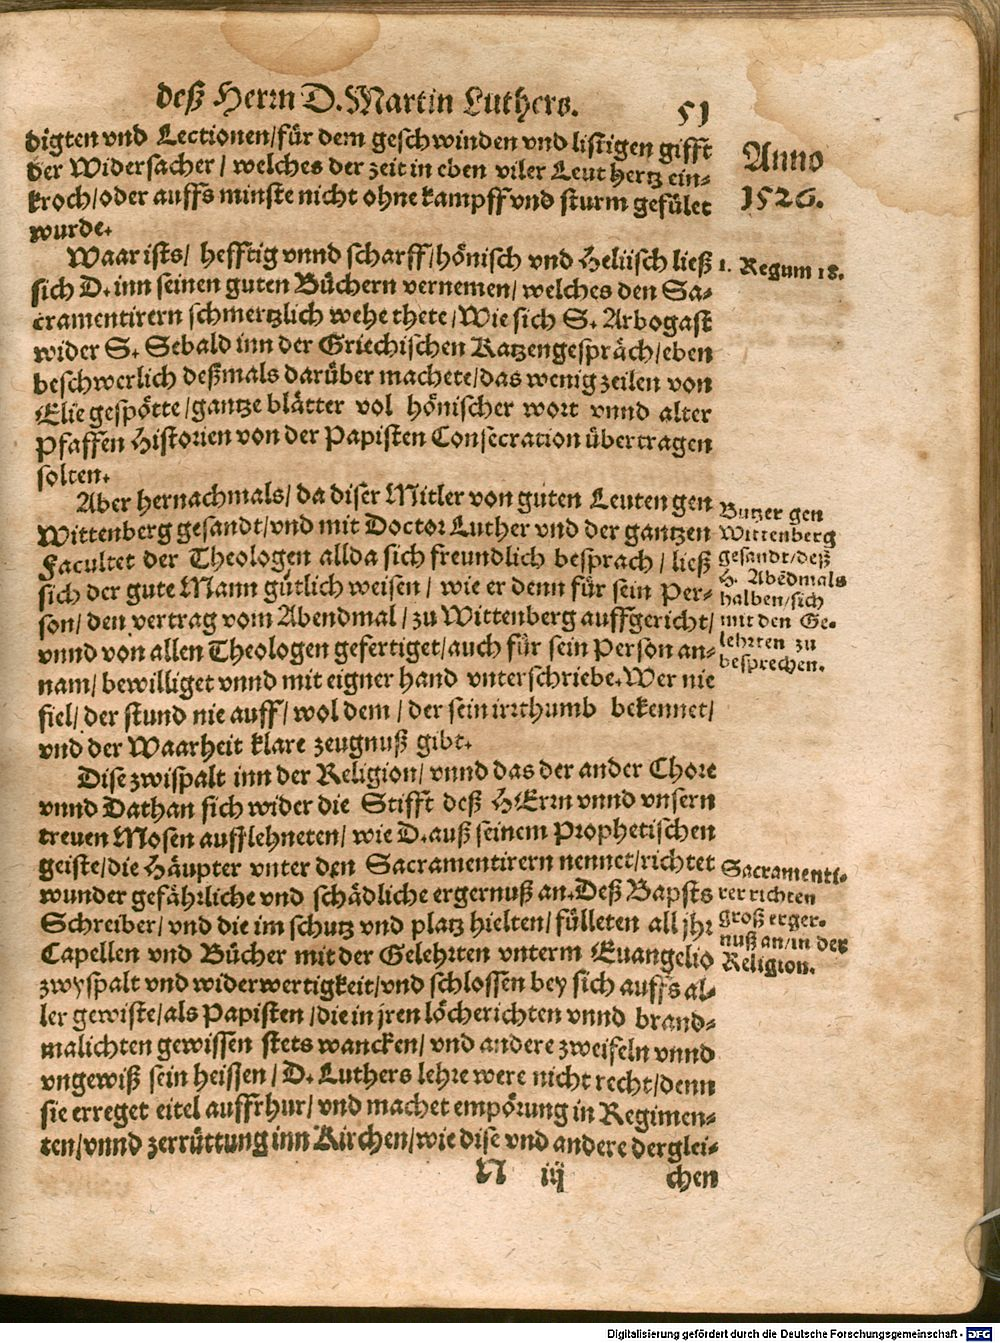 deß Herrn D. Martin Luthers. 51
digten vnd Lectionen/für dem geschwinden vnd listigen gifft
der Widersacher/ welches der zeit in eben viler Leut hertz ein-
kroch/oder auffs minste nicht ohne kampff vnd sturm gefület
wurde.
Waar ists/ hefftig vnnd scharff/hönisch vnd Heliisch ließ
sich D. inn seinen guten Büchern vernemen/ welches den Sa-
cramentirern schmertzlich wehe thete/Wie sich S. Arbogast
wider S. Sebald inn der Griechischen Katzengespräch/eben
beschwerlich deßmals darüber machete/das wenig zeilen von
Elie gespötte/gantze blätter vol hönischer wort vnnd alter
Pfaffen Historien von der Papisten Consecration übertragen
solten.
Aber hernachmals/ da diser Mitler von guten Leuten gen
Wittenberg gesandt/vnd mit Doctor Luther vnd der gantzen
Facultet der Theologen allda sich freundlich besprach/ ließ
sich der gute Mann gütlich weisen/ wie er denn für sein Per-
son/ den vertrag vom Abendmal/ zu Wittenberg auffgericht/
vnnd von allen Theologen gefertiget/auch für sein Person an-
nam/ bewilliget vnnd mit eigner hand vnterschriebe. Wer nie
fiel/ der stund nie auff/ wol dem/ der sein irrthumb bekennet/
vnd der Waarheit klare zeugnuß gibt.
Dise zwispalt inn der Religion/ vnnd das der ander Chore
vnnd Dathan sich wider die Stifft deß HErrn vnnd vnsern
treuen Mosen aufflehneten/ wie D. auß seinem Prophetischen
geiste/die Häupter vnter den Sacramentirern nennet/richtet
wunder gefährliche vnd schädliche ergernuß an. Deß Bapsts
Schreiber/ vnd die im schutz vnd platz hielten/ fülleten all jhr
Capellen vnd Bücher mit der Gelehrten vnterm Euangelio
zwyspalt vnd widerwertigkeit/vnd schlossen bey sich auffs al-
ler gewiste/als Papisten/die in jren löcherichten vnnd brand-
malichten gewissen stets wancken/ vnd andere zweifeln vnnd
vngewiß sein heissen/ D. Luthers lehre were nicht recht/denn
sie erreget eitel auffrhur/ vnd machet empörung in Regimen-
ten/vnnd zerrüttung inn Kirchen/wie dise vnd andere derglei-
N iij chen
Anno
1526.
1. Regum 18.
Butzer gen
Wittenberg
gesandt/deß
H. Abẽdmals
halben/sich
mit den Ge-
lehrten zu
besprechen.
Sacramenti-
rer richten
groß erger-
nuß an/in der
Religion.
Digitalisierung gefördert durch die Deutsche Forschungsgemeinschaft - DFG